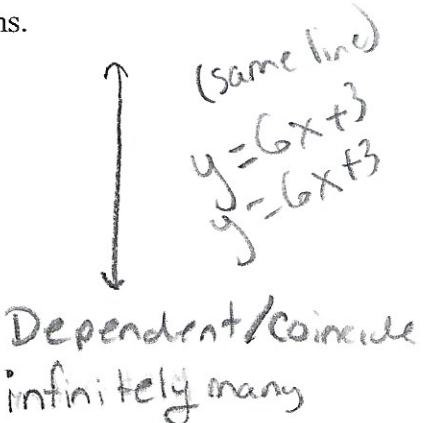 ns.
(same line)
y=6x+3
y=6x+3
Dependent/Coincide
infinitely many